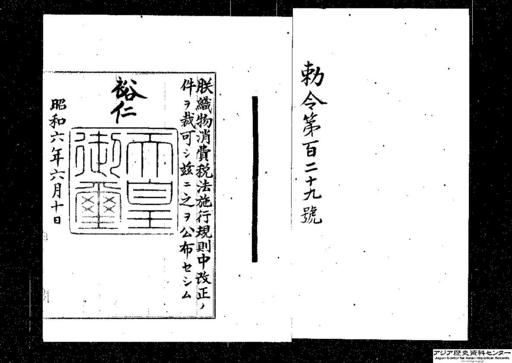 勅令第百二十九號
朕織物消費税法施行規則中改正ノ
件ヲ裁可シ茲ニ之ヲ公布セシム
裕仁
天皇
御璽
昭和六年六月十日
アジア歴史資料センター
Japan Center for Asian Historical Records